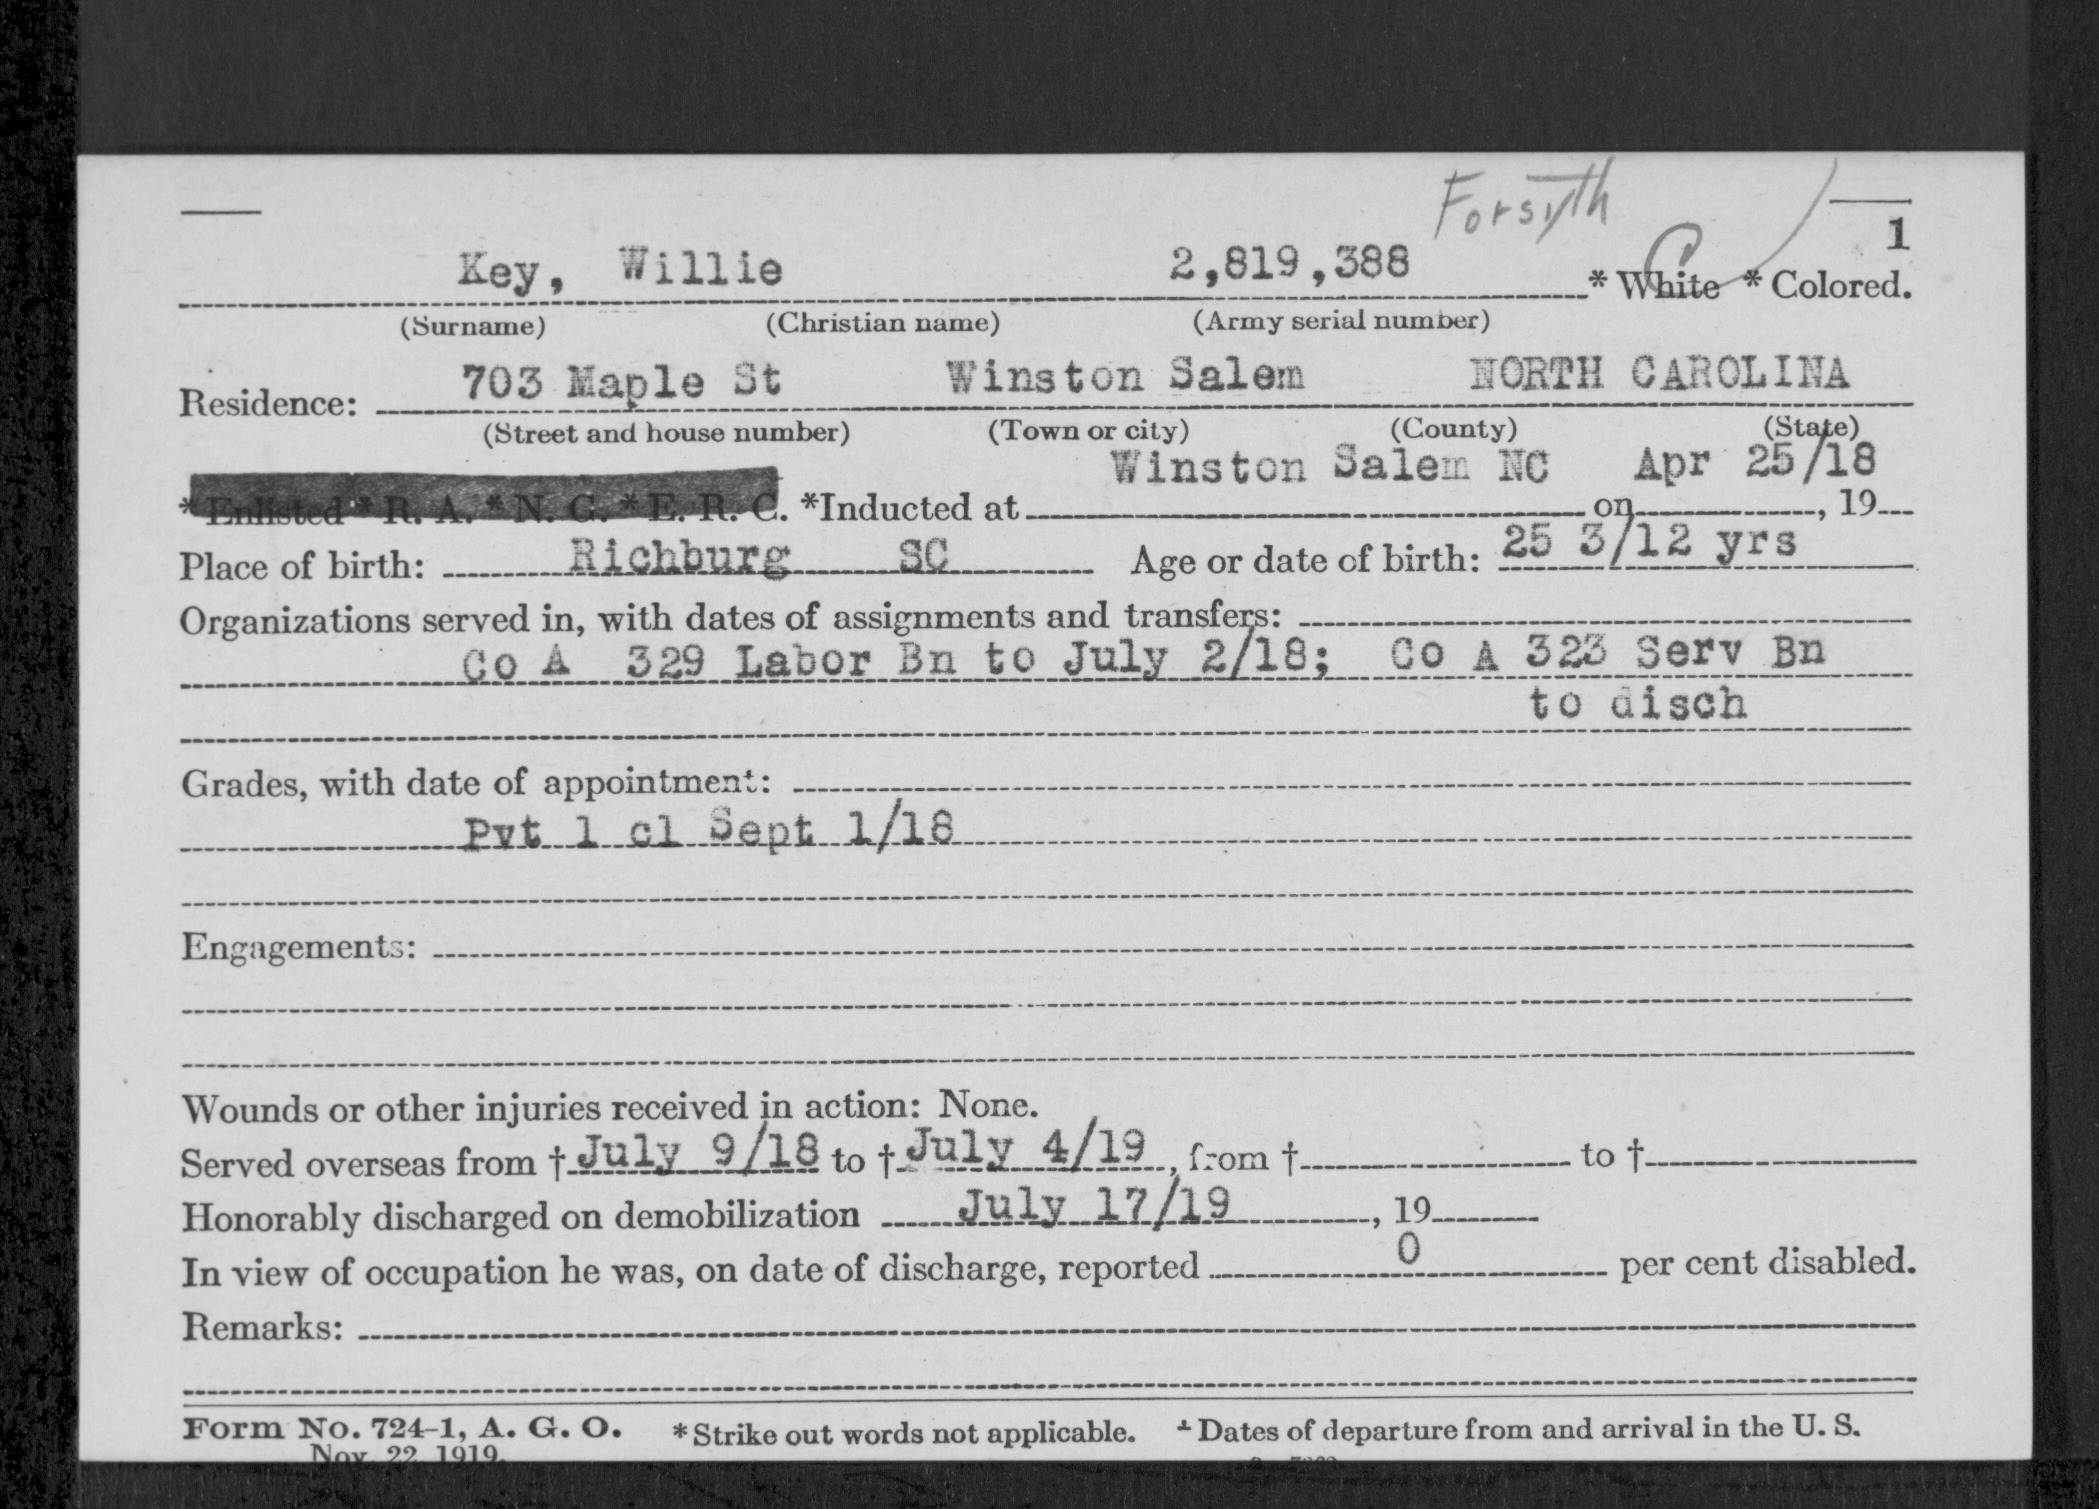 Forsyth
1
Key, Willie 2,819,388 * White * Colored.
C
(Surname) (Christian name) (Army serial number)
703 Maple St Winston Salem NORTH CAROLINA
Residence:
(Street and house number) (Town or city) (County) (State)
Winston Salem NC Apr 25/18
* Enlisted * R. A. * N. G. * E. R. C. *Inducted at on , 19
Place of birth: Richburg SC Age or date of birth: 25 3/12 yrs
Organizations served in, with dates of assignments and transfers:
Co A 329 Labor Bn to July 2/18; Co A 323 Serv Bn
to disch
Grades, with date of appointment:
Pvt 1 cl Sept 1/18
Engagements:
Wounds or other injuries received in action: None.
Served overseas from † July 9/18 to † July 4/19, from † to †
Honorably discharged on demobilization July 17/19, 19
In view of occupation he was, on date of discharge, reported 0 per cent disabled.
Remarks:
Form No. 724-1, A. G. O. * Strike out words not applicable. † Dates of departure from and arrival in the U. S.
Nov. 22, 1919.